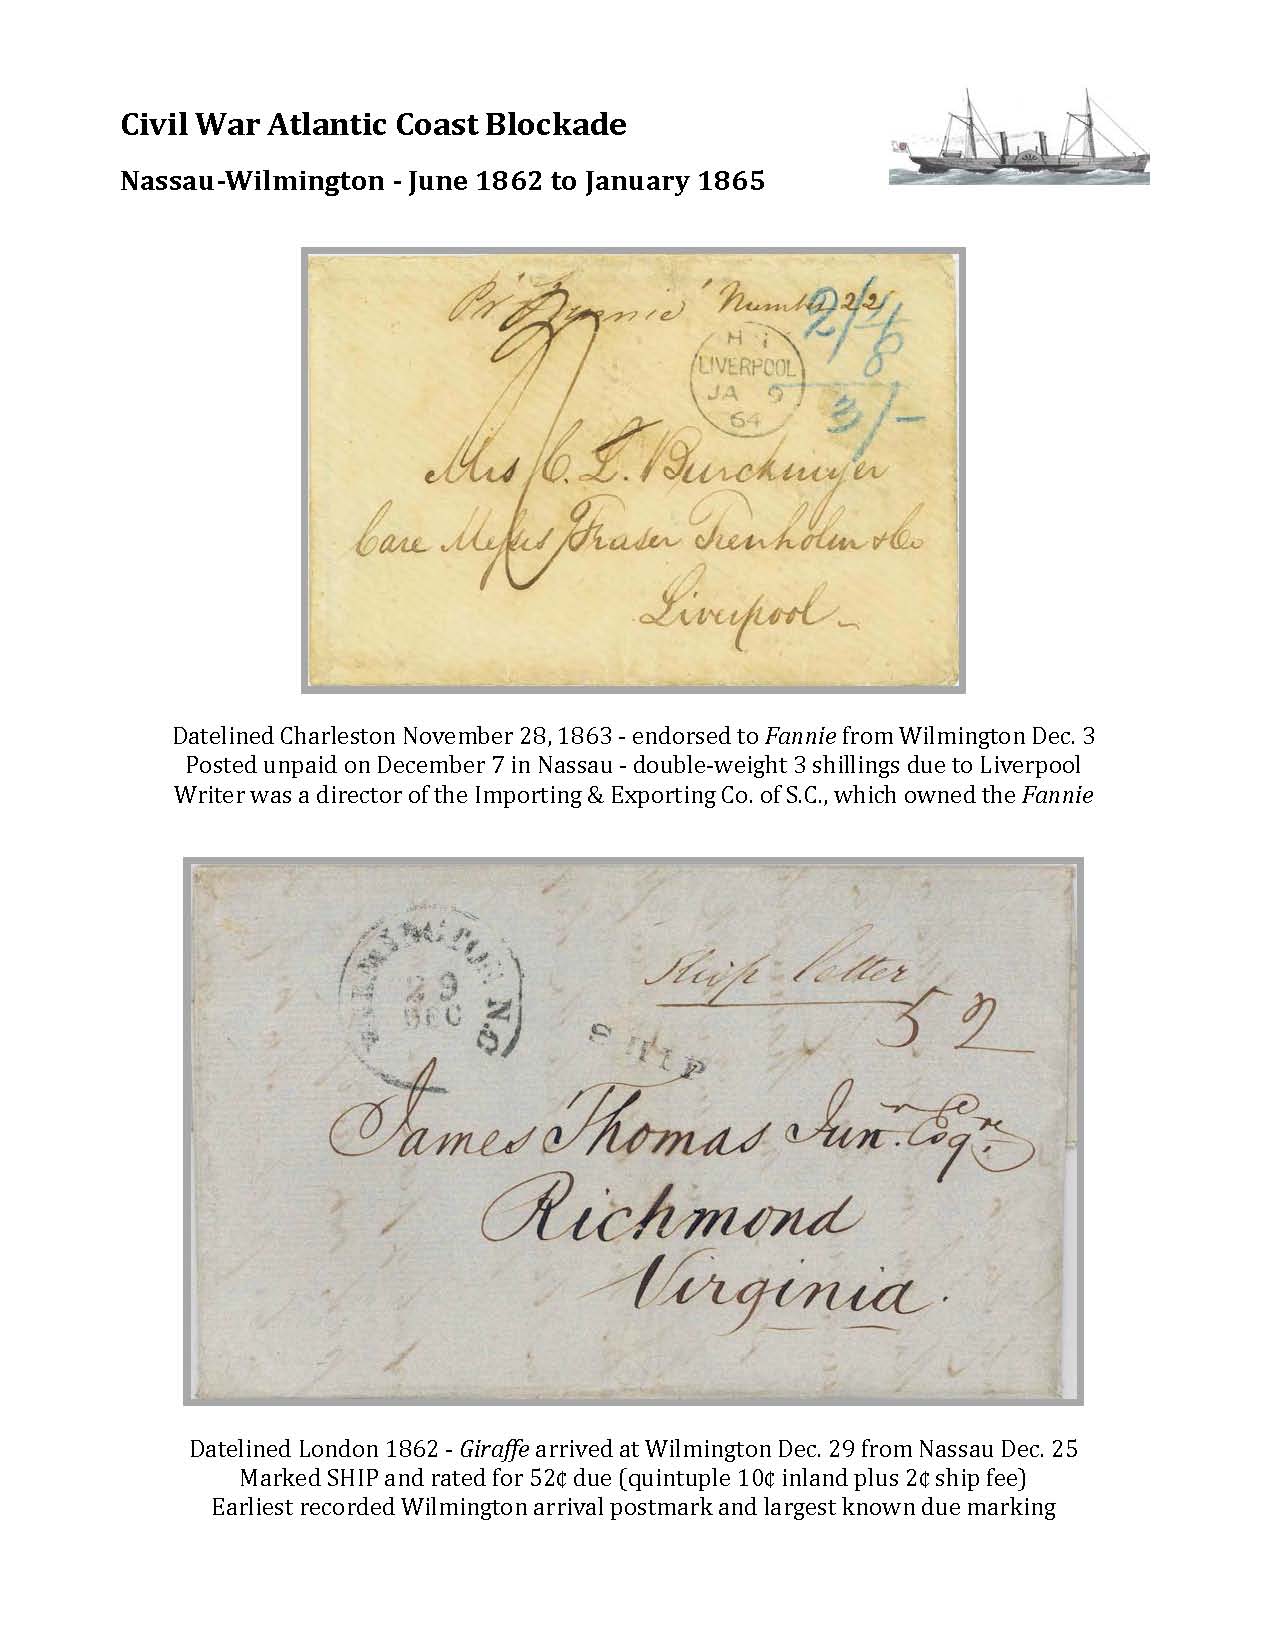 Civil War Atlantic Coast Blockade
Nassau-Wilmington - June 1862 to January 1865
Pr 'Fannie' Number 22
2/4
/8
3/-
H I
LIVERPOOL
JA 9
64
Mrs C. L. Burckmyer
Care Messrs Fraser Trenholm & Co
Liverpool
Datelined Charleston November 28, 1863 - endorsed to Fannie from Wilmington Dec. 3
Posted unpaid on December 7 in Nassau - double-weight 3 shillings due to Liverpool
Writer was a director of the Importing & Exporting Co. of S.C., which owned the Fannie
WILMINGTON N.C.
29
DEC
Ship letter
52
SHIP
James Thomas Junr. Esqre.
Richmond
Virginia.
Datelined London 1862 - Giraffe arrived at Wilmington Dec. 29 from Nassau Dec. 25
Marked SHIP and rated for 52¢ due (quintuple 10¢ inland plus 2¢ ship fee)
Earliest recorded Wilmington arrival postmark and largest known due marking